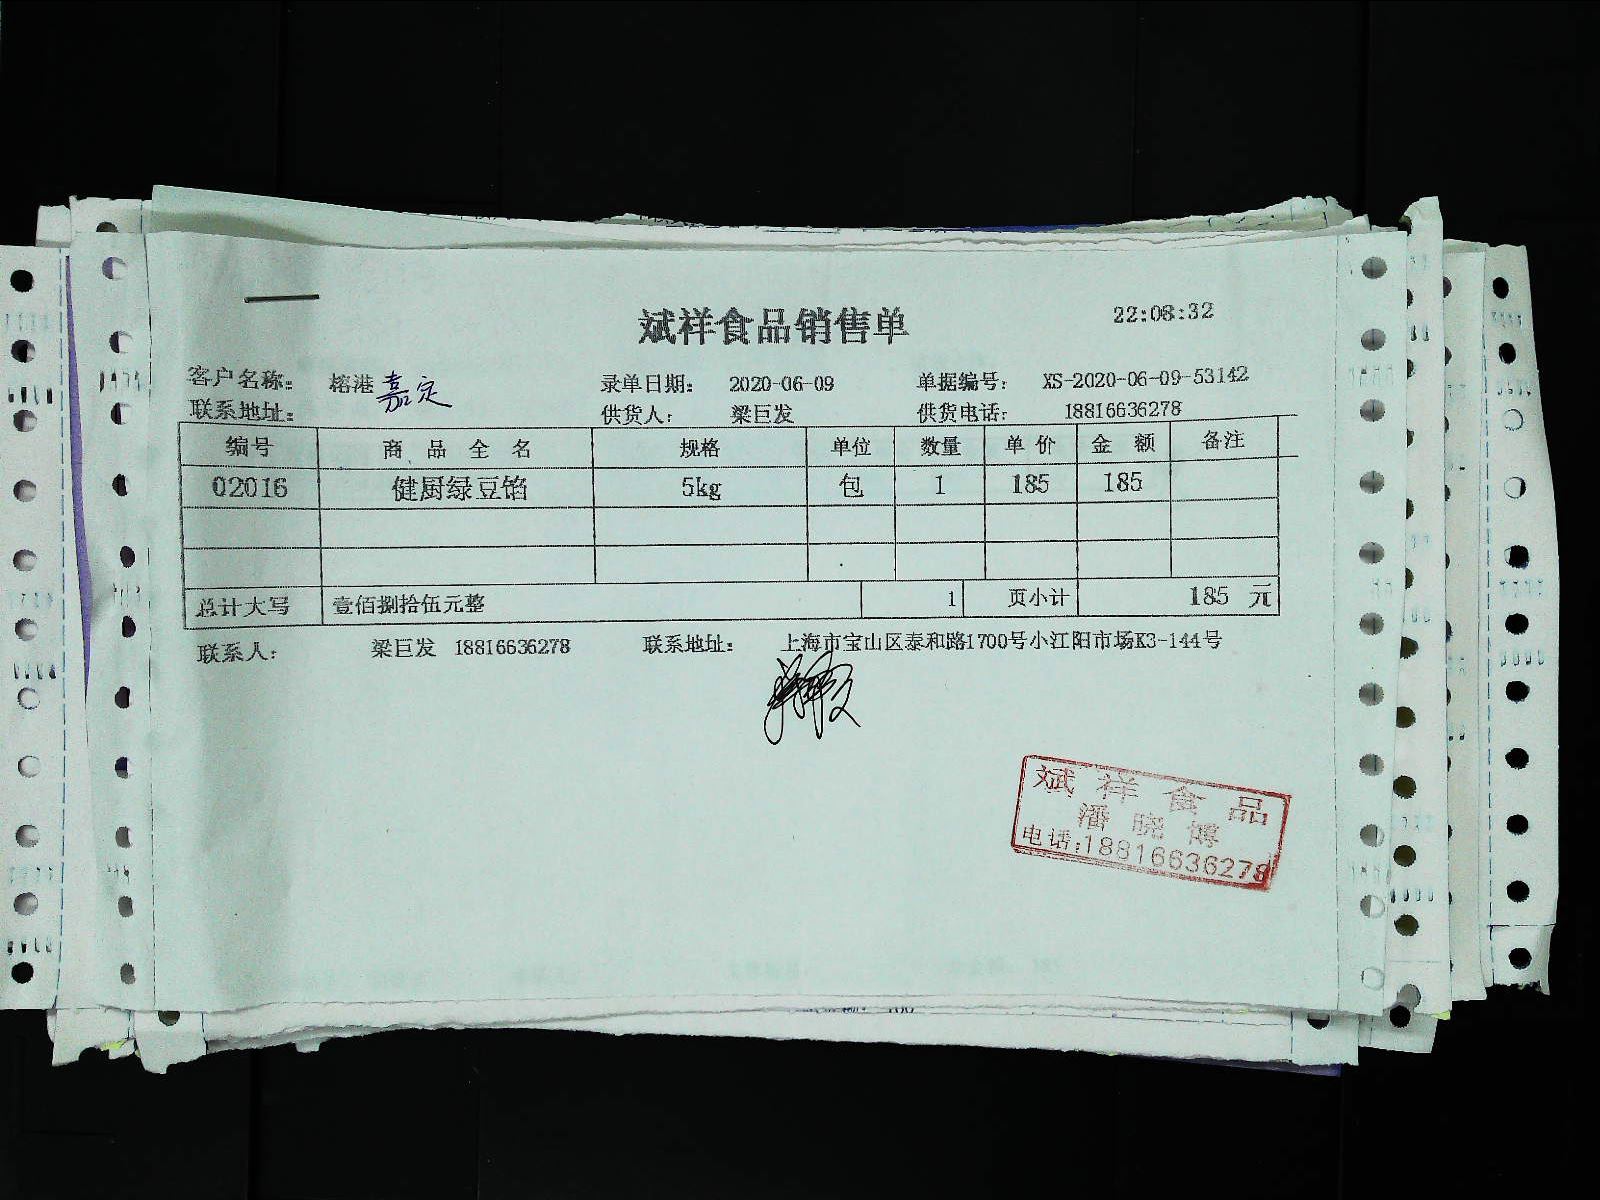 斌祥食品销售单 22:08:32
客户名称： 榕港 嘉定 录单日期： 2020-06-09 单据编号： XS-2020-06-09-53142
联系地址： 供货人： 梁巨发 供货电话： 18816636278
编号 商品全名 规格 单位 数量 单价 金额 备注
02016 健厨绿豆馅 5kg 包 1 185 185
总计大写 壹佰捌拾伍元整 1 页小计 185 元
联系人： 梁巨发 18816636278 联系地址： 上海市宝山区泰和路1700号小江阳市场K3-144号
斌祥食品
潘晓博
电话:18816636278